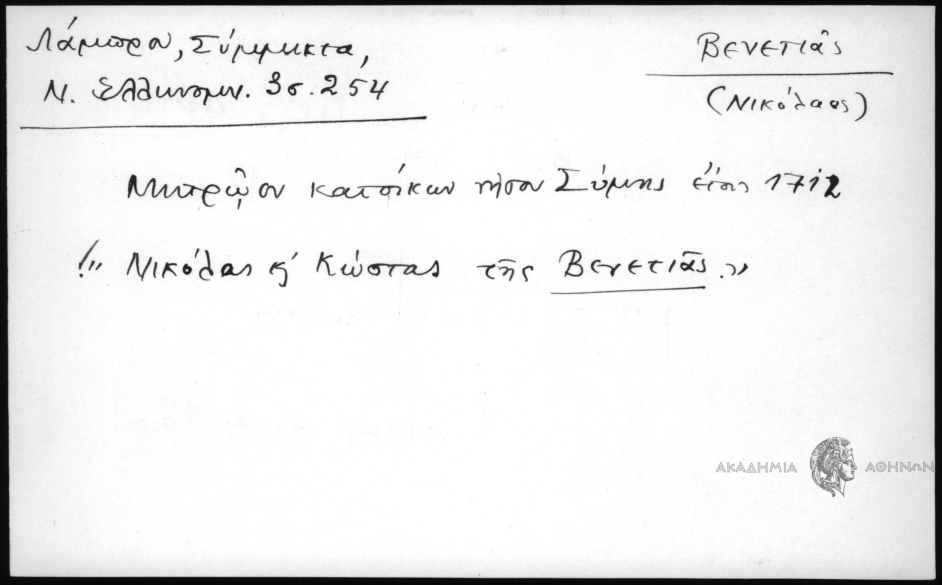 Λάμπρου, Σύμμικτα,
Ν. Ελληνομν. 3σ. 254
Βενετιᾶς
(Νικόλαος)
Μητρῷον κατοίκων νήσου Σύμης ἔτους 1712
"Νικόλας κ' Κώστας τῆς Βενετιᾶς."
ΑΚΑΔΗΜΙΑ ΑΘΗΝΩΝ